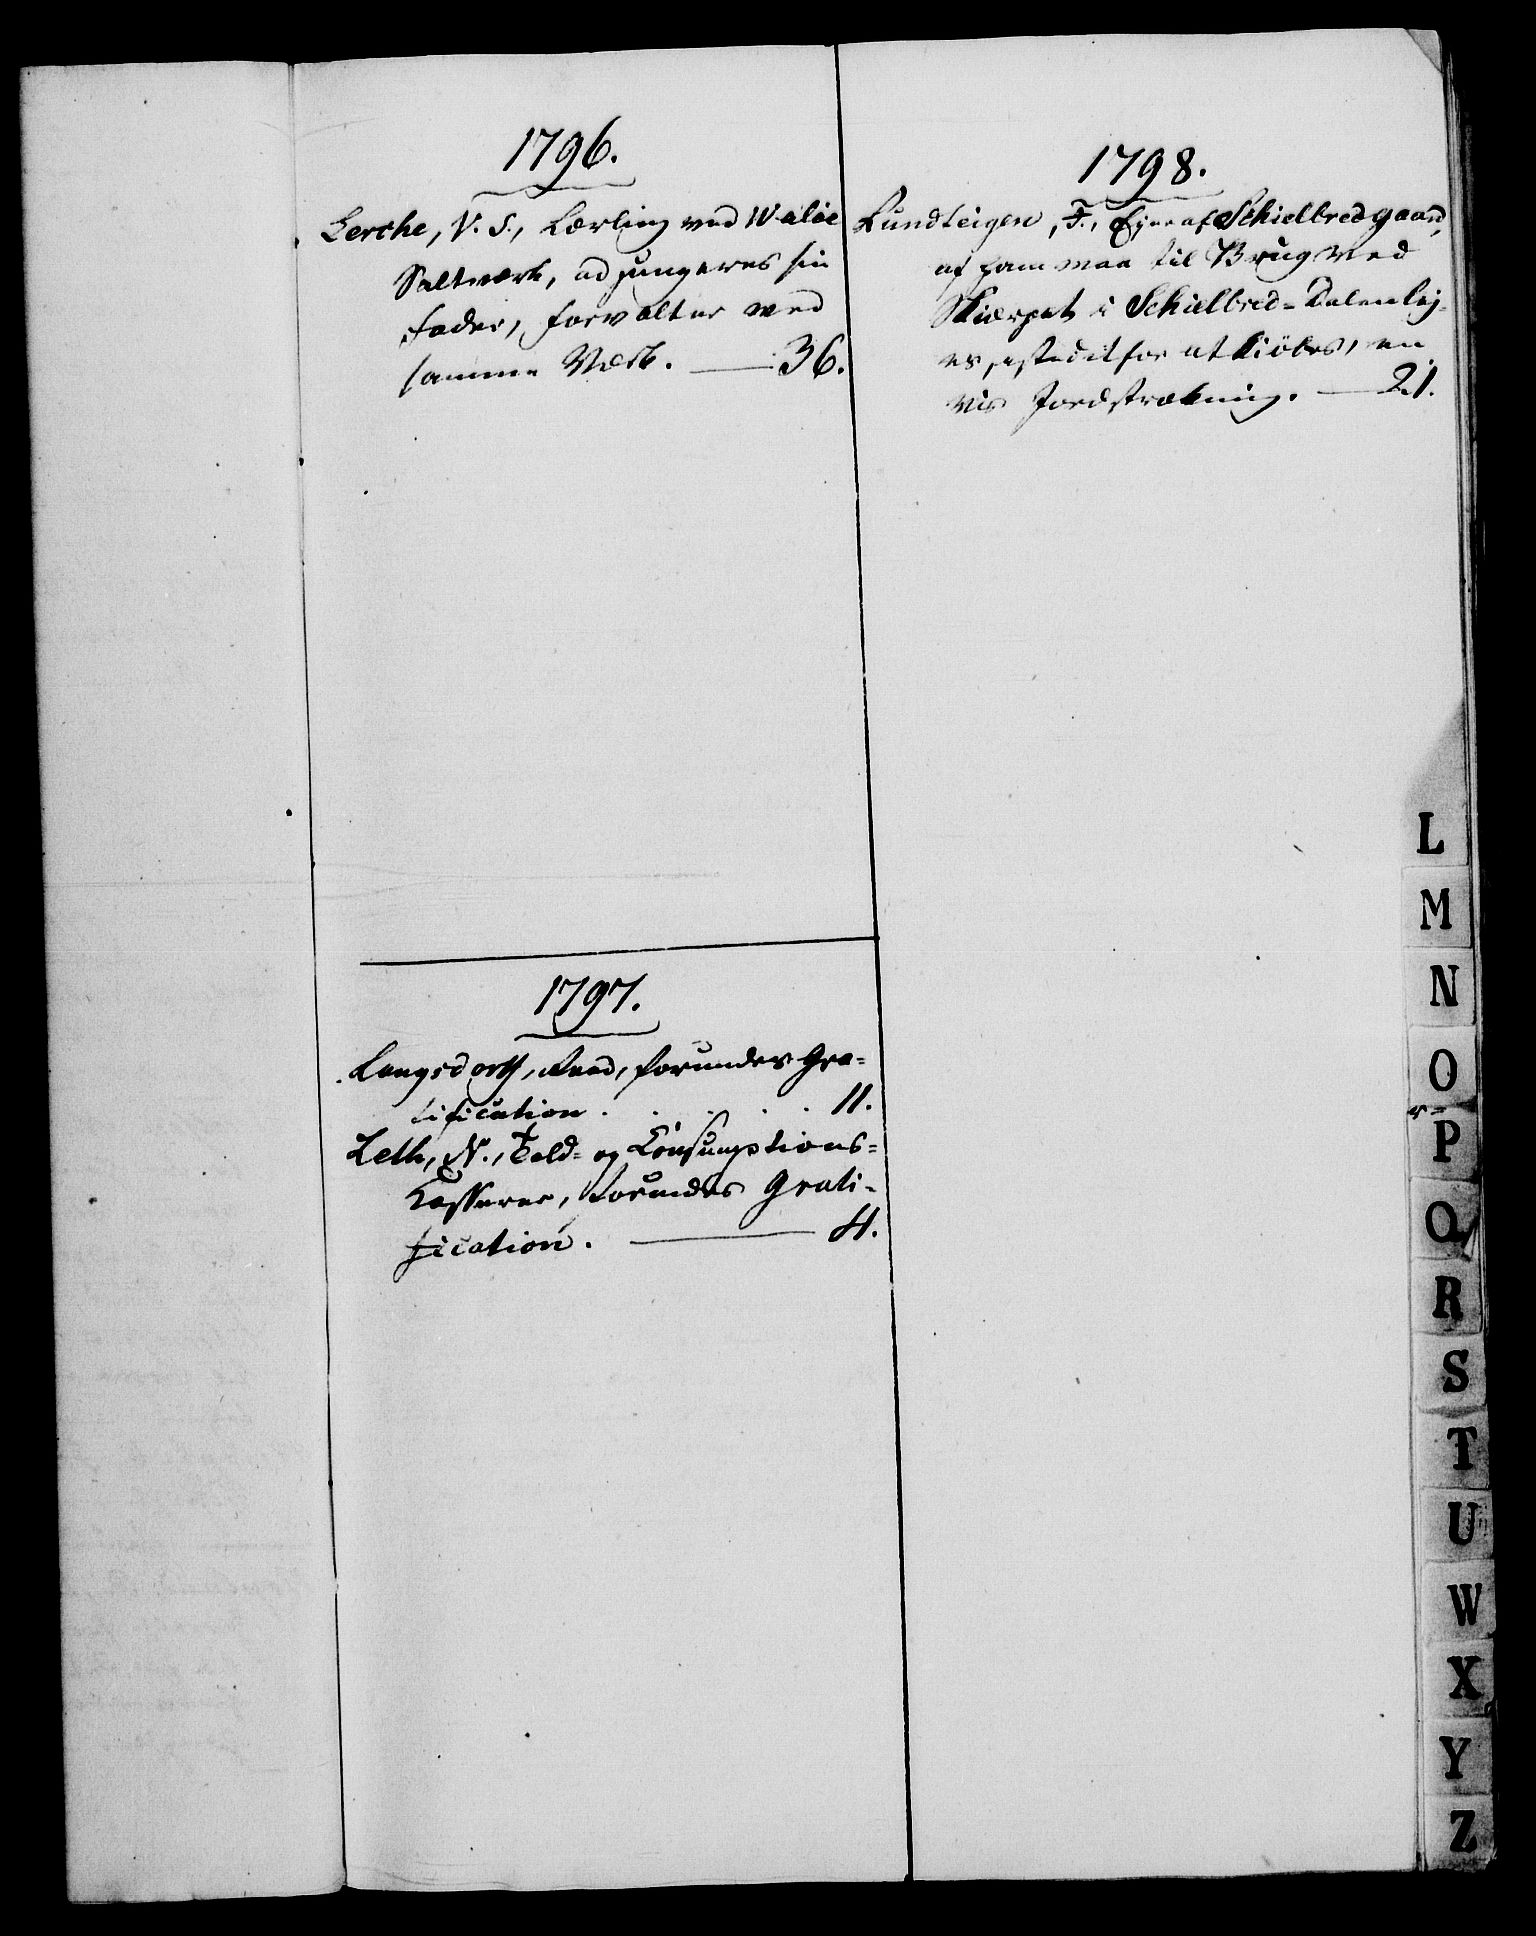 1796.
Lerche, N. S., Lærling ved Waløe
Saltværk, adjungeres sin
Fader, Forvalter ved
samme Værk. — 36.
1797.
Langsdorff, forundes Gra-
tification . . . . 11.
Leth, N., Told- og Consumptions-
Casserer, forundes Grati-
fication. — 4.
1798.
Lundteigen, F., Ejer af Schielbredgaard,
af ham maa til Brug ved
Skiærpet i Schielbred-Dalen lej-
es, istedetfor at kiöbes, en
vis Jordstrækning. — 21.
L
M
N
O
P
Q
R
S
T
U
W
X
Y
Z